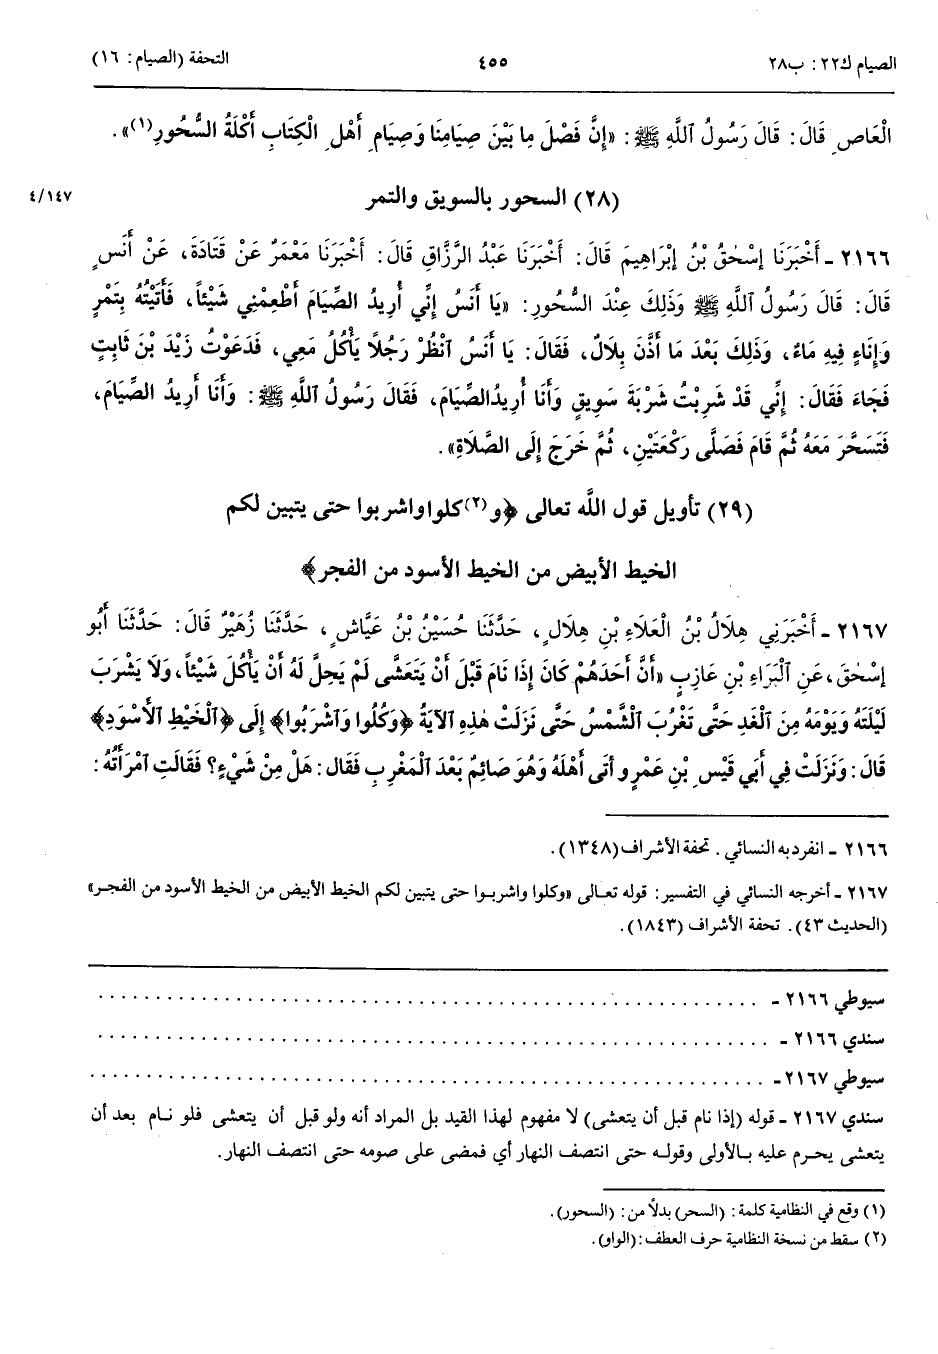 الصيام ك٢٢: ب٢٨ ٤٥٥ التحفة (الصيام: ١٦)
الْعَاصِ قَالَ: قَالَ رَسُولُ ٱللَّهِ ﷺ: «إِنَّ فَصْلَ مَا بَيْنَ صِيَامِنَا وَصِيَامِ أَهْلِ الْكِتَابِ أَكْلَةُ السُّحُورِ(١)».
(٢٨) السحور بالسويق والتمر ٤/١٤٧
٢١٦٦ ـ أَخْبَرَنَا إِسْحٰقُ بْنُ إِبْرَاهِيمَ قَالَ: أَخْبَرَنَا عَبْدُ الرَّزَّاقِ قَالَ: أَخْبَرَنَا مَعْمَرٌ عَنْ قَتَادَةَ، عَنْ أَنَسٍ
قَالَ: قَالَ رَسُولُ ٱللَّهِ ﷺ وَذَلِكَ عِنْدَ السُّحُورِ: «يَا أَنَسُ إِنِّي أُرِيدُ الصِّيَامَ أَطْعِمْنِي شَيْئاً، فَأَتَيْتُهُ بِتَمْرٍ
وَإِنَاءٍ فِيهِ مَاءٌ، وَذَلِكَ بَعْدَ مَا أَذَّنَ بِلَالٌ، فَقَالَ: يَا أَنَسُ ٱنْظُرْ رَجُلاً يَأْكُلُ مَعِي، فَدَعَوْتُ زَيْدَ بْنَ ثَابِتٍ
فَجَاءَ فَقَالَ: إِنِّي قَدْ شَرِبْتُ شَرْبَةَ سَوِيقٍ وَأَنَا أُرِيدُ الصِّيَامَ، فَقَالَ رَسُولُ ٱللَّهِ ﷺ: وَأَنَا أُرِيدُ الصِّيَامَ،
فَتَسَحَّرَ مَعَهُ ثُمَّ قَامَ فَصَلَّى رَكْعَتَيْنِ، ثُمَّ خَرَجَ إِلَى الصَّلَاةِ».
(٢٩) تأويل قول اللَّه تعالى ﴿و(٢)كلوا واشربوا حتى يتبين لكم
الخيط الأبيض من الخيط الأسود من الفجر﴾
٢١٦٧ ـ أَخْبَرَنِي هِلَالُ بْنُ الْعَلَاءِ بْنِ هِلَالٍ، حَدَّثَنَا حُسَيْنُ بْنُ عَيَّاشٍ، حَدَّثَنَا زُهَيْرٌ قَالَ: حَدَّثَنَا أَبُو
إِسْحٰقَ، عَنِ ٱلْبَرَاءِ بْنِ عَازِبٍ «أَنَّ أَحَدَهُمْ كَانَ إِذَا نَامَ قَبْلَ أَنْ يَتَعَشَّى لَمْ يَحِلَّ لَهُ أَنْ يَأْكُلَ شَيْئاً، وَلَا يَشْرَبَ
لَيْلَتَهُ وَيَوْمَهُ مِنَ ٱلْغَدِ حَتَّى تَغْرُبَ ٱلشَّمْسُ حَتَّى نَزَلَتْ هٰذِهِ ٱلآيَةُ ﴿وَكُلُوا وَٱشْرَبُوا﴾ إِلَى ﴿ٱلْخَيْطِ ٱلْأَسْوَدِ﴾
قَالَ: وَنَزَلَتْ فِي أَبِي قَيْسِ بْنِ عَمْرٍو أَتَى أَهْلَهُ وَهُوَ صَائِمٌ بَعْدَ ٱلْمَغْرِبِ فَقَالَ: هَلْ مِنْ شَيْءٍ؟ فَقَالَتِ ٱمْرَأَتُهُ:
٢١٦٦ ـ انفرد به النسائي. تحفة الأشراف (١٣٤٨).
٢١٦٧ ـ أخرجه النسائي في التفسير: قوله تعالى «وكلوا واشربوا حتى يتبين لكم الخيط الأبيض من الخيط الأسود من الفجر»
(الحديث ٤٣). تحفة الأشراف (١٨٤٣).
سيوطي ٢١٦٦ ـ ........................................
سندي ٢١٦٦ ـ ........................................
سيوطي ٢١٦٧ـ ........................................
سندي ٢١٦٧ ـ قوله (إذا نام قبل أن يتعشى) لا مفهوم لهذا القيد بل المراد أنه ولو قبل أن يتعشى فلو نام بعد أن
يتعشى يحرم عليه بالأولى وقوله حتى انتصف النهار أي فمضى على صومه حتى انتصف النهار.
(١) وقع في النظامية كلمة: (السحر) بدلاً من: (السحور).
(٢) سقط من نسخة النظامية حرف العطف: (الواو).